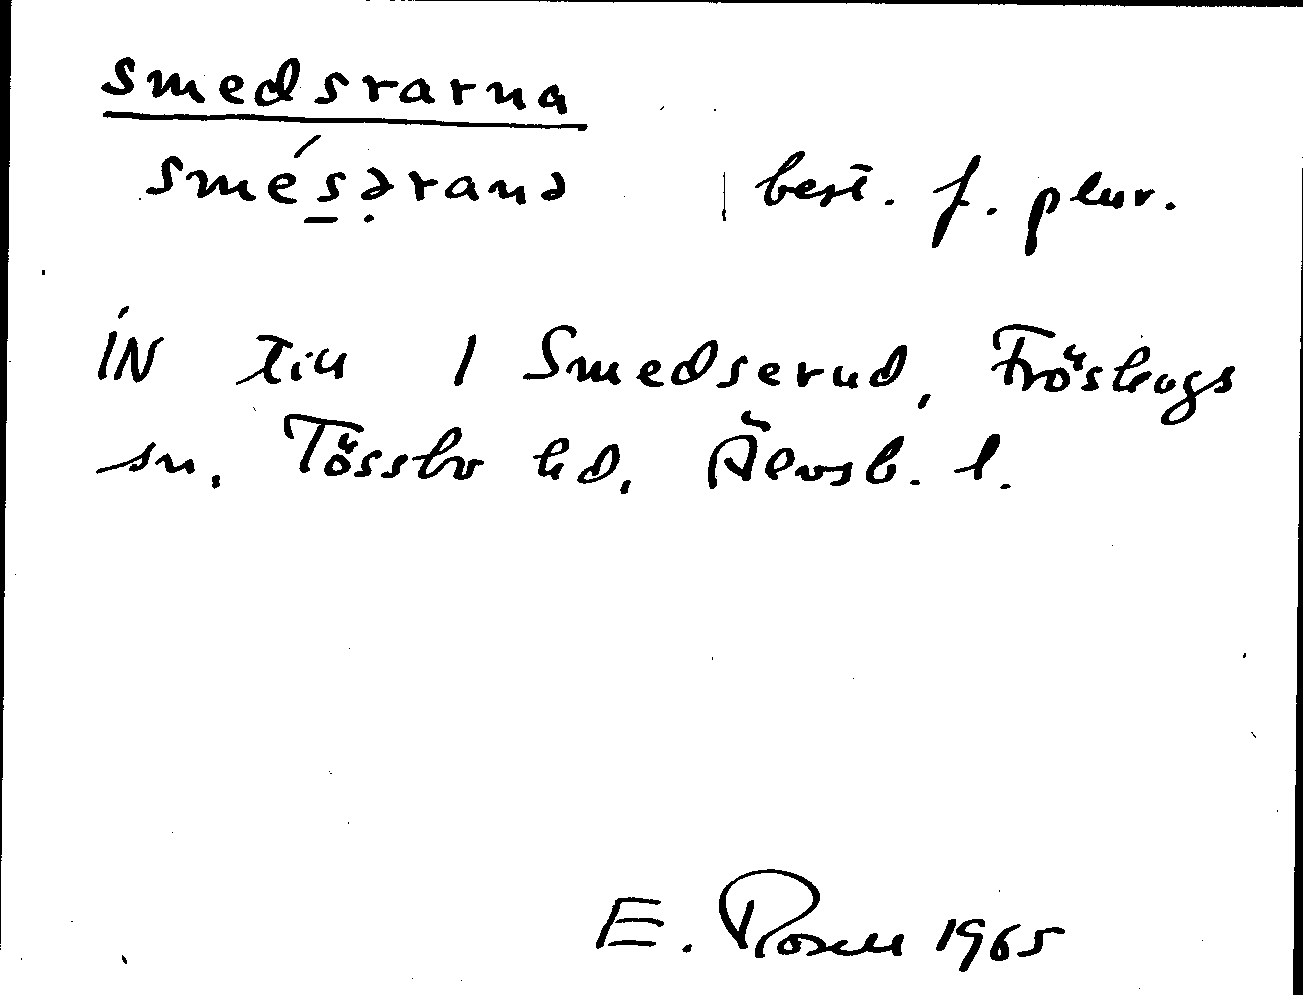 smedsrarna
smés̲ə̣ranə | best. f. plur.
IN till 1 Smedserud, Fröskogs
sn. Tössbo hd. Älvsb. l.
E. Rosell 1965